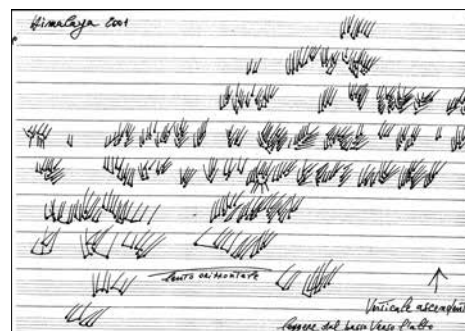 Himalaya 2001
lento orizzontale
Verticale ascendent
leggere dal basso verso l'alto